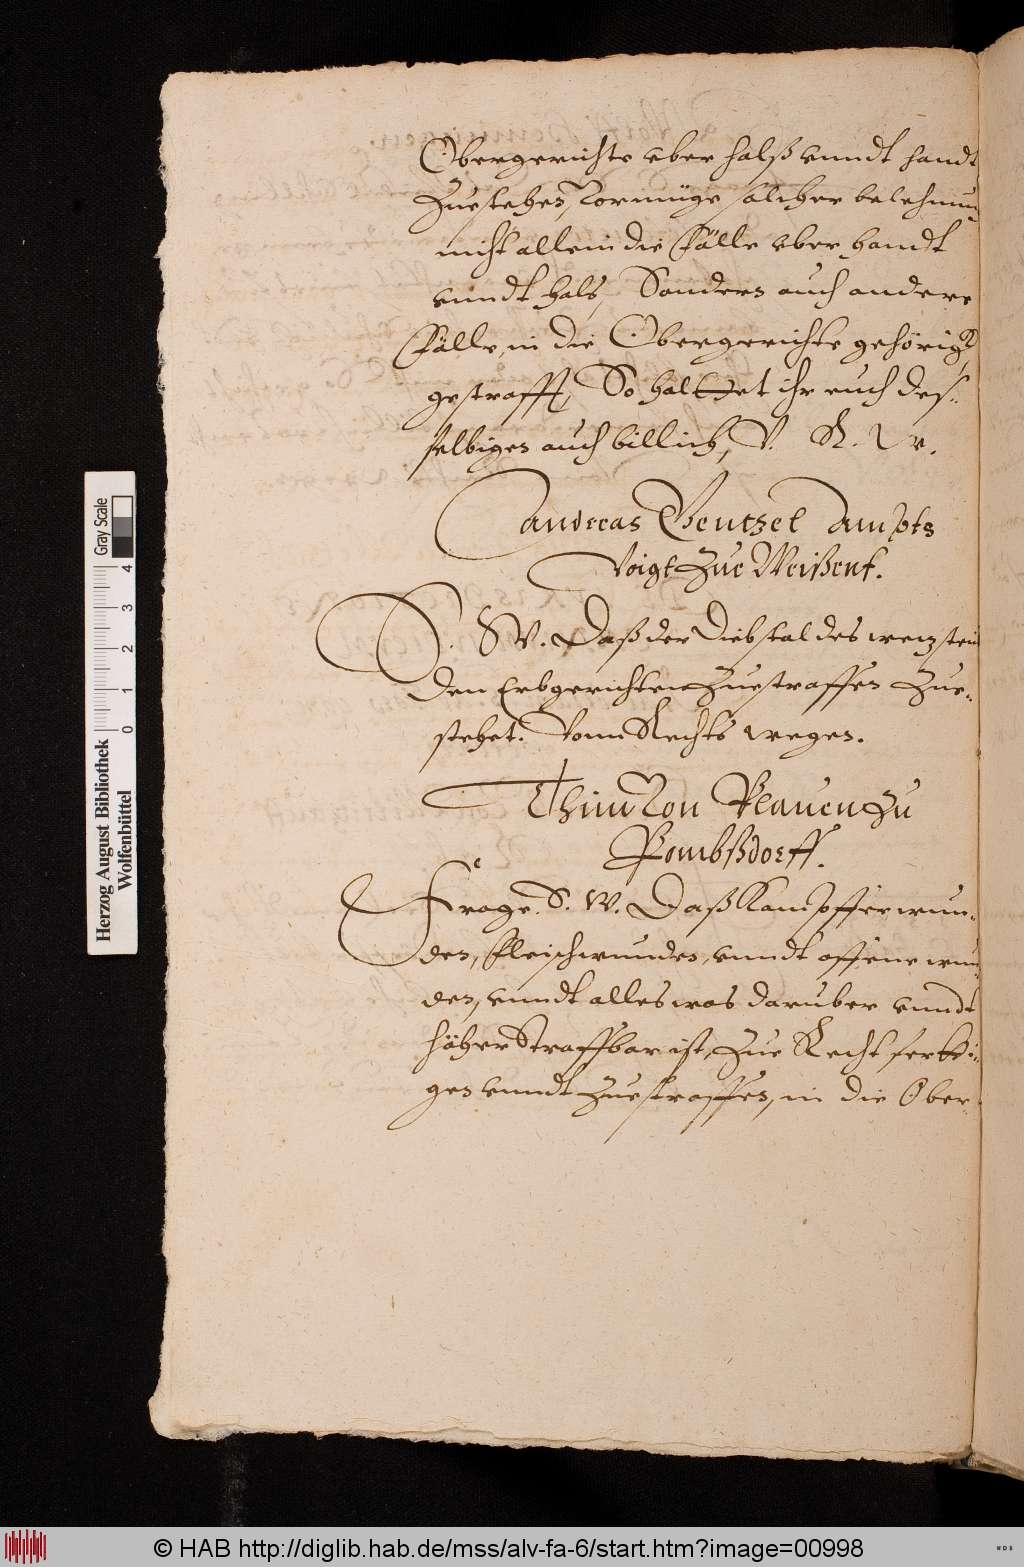 Obergerichte vber halß vnndt handt
Zuestehen, Vormüge solcher belehnun-
nicht allein die Fälle vber handt
vnndt hals, Sondern auch andere
Fälle, in die Obergerichte gehörigk
gestrafft, So halttet ihr euch des-
selbigen auch billich, V. R. W.
Andreas Wentzel Ampts
Voigt Zue Weißenf.
S. W. Daß der Diebstal des wetzstein
den Erbgerichten Zuestraffen Zue-
stehet. Vonn Rechts wegen.
Thim Von Plauen Zu
Pombßdorff.
Frage. S. W. Daß Kampfferwun-
den, Fleischwunden, vnndt offene wun-
den, vnndt alles was daruber vnndt
höher Straffbar ist, Zue Rechtferti-
gen vnndt Zuestraffen, in die Ober-
Herzog August Bibliothek
Wolfenbüttel
0 1 2 3 4
Gray Scale
© HAB http://diglib.hab.de/mss/alv-fa-6/start.htm?image=00998